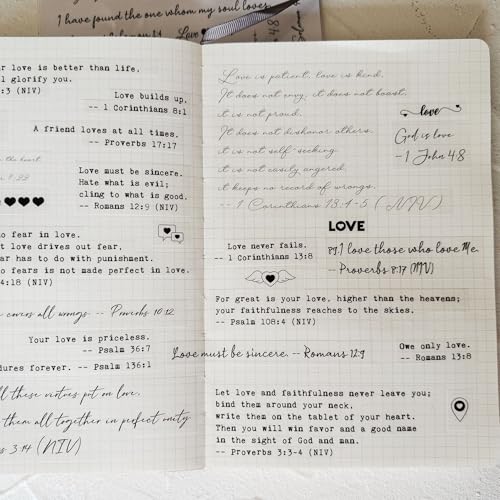 I have found the one whom my soul loves.
Love
r love is better than life,
l glorify you.
:3 (NIV)
Love builds up,
-- 1 Corinthians 8:1
A friend loves at all times.
-- Proverbs 17:17
the heart
Love must be sincere.
Hate what is evil;
cling to what is good.
-- Romans 12:9 (NIV)
o fear in love.
t love drives out fear,
ar has to do with punishment.
o fears is not made perfect in love.
4:18 (NIV)
covers all wrongs. -- Proverbs 10:12
Your love is priceless.
-- Psalm 36:7
dures forever. -- Psalm 136:1
ll these virtues put on love,
them all together in perfect unity.
s 3:14 (NIV)
Love is patient, love is kind.
It does not envy, it does not boast,
it is not proud.
It does not dishonor others,
it is not self-seeking,
it is not easily angered,
it keeps no record of wrongs.
-- 1 Corinthians 13:4-5 (NIV)
love
God is love
-1 John 4:8
LOVE
Love never fails.
-- 1 Corinthians 13:8
8:17 I love those who love Me.
-- Proverbs 8:17 (NIV)
For great is your love, higher than the heavens;
your faithfulness reaches to the skies.
-- Psalm 108:4 (NIV)
Love must be sincere. -- Romans 12:9
Owe only love.
-- Romans 13:8
Let love and faithfulness never leave you;
bind them around your neck,
write them on the tablet of your heart.
Then you will win favor and a good name
in the sight of God and man.
-- Proverbs 3:3-4 (NIV)